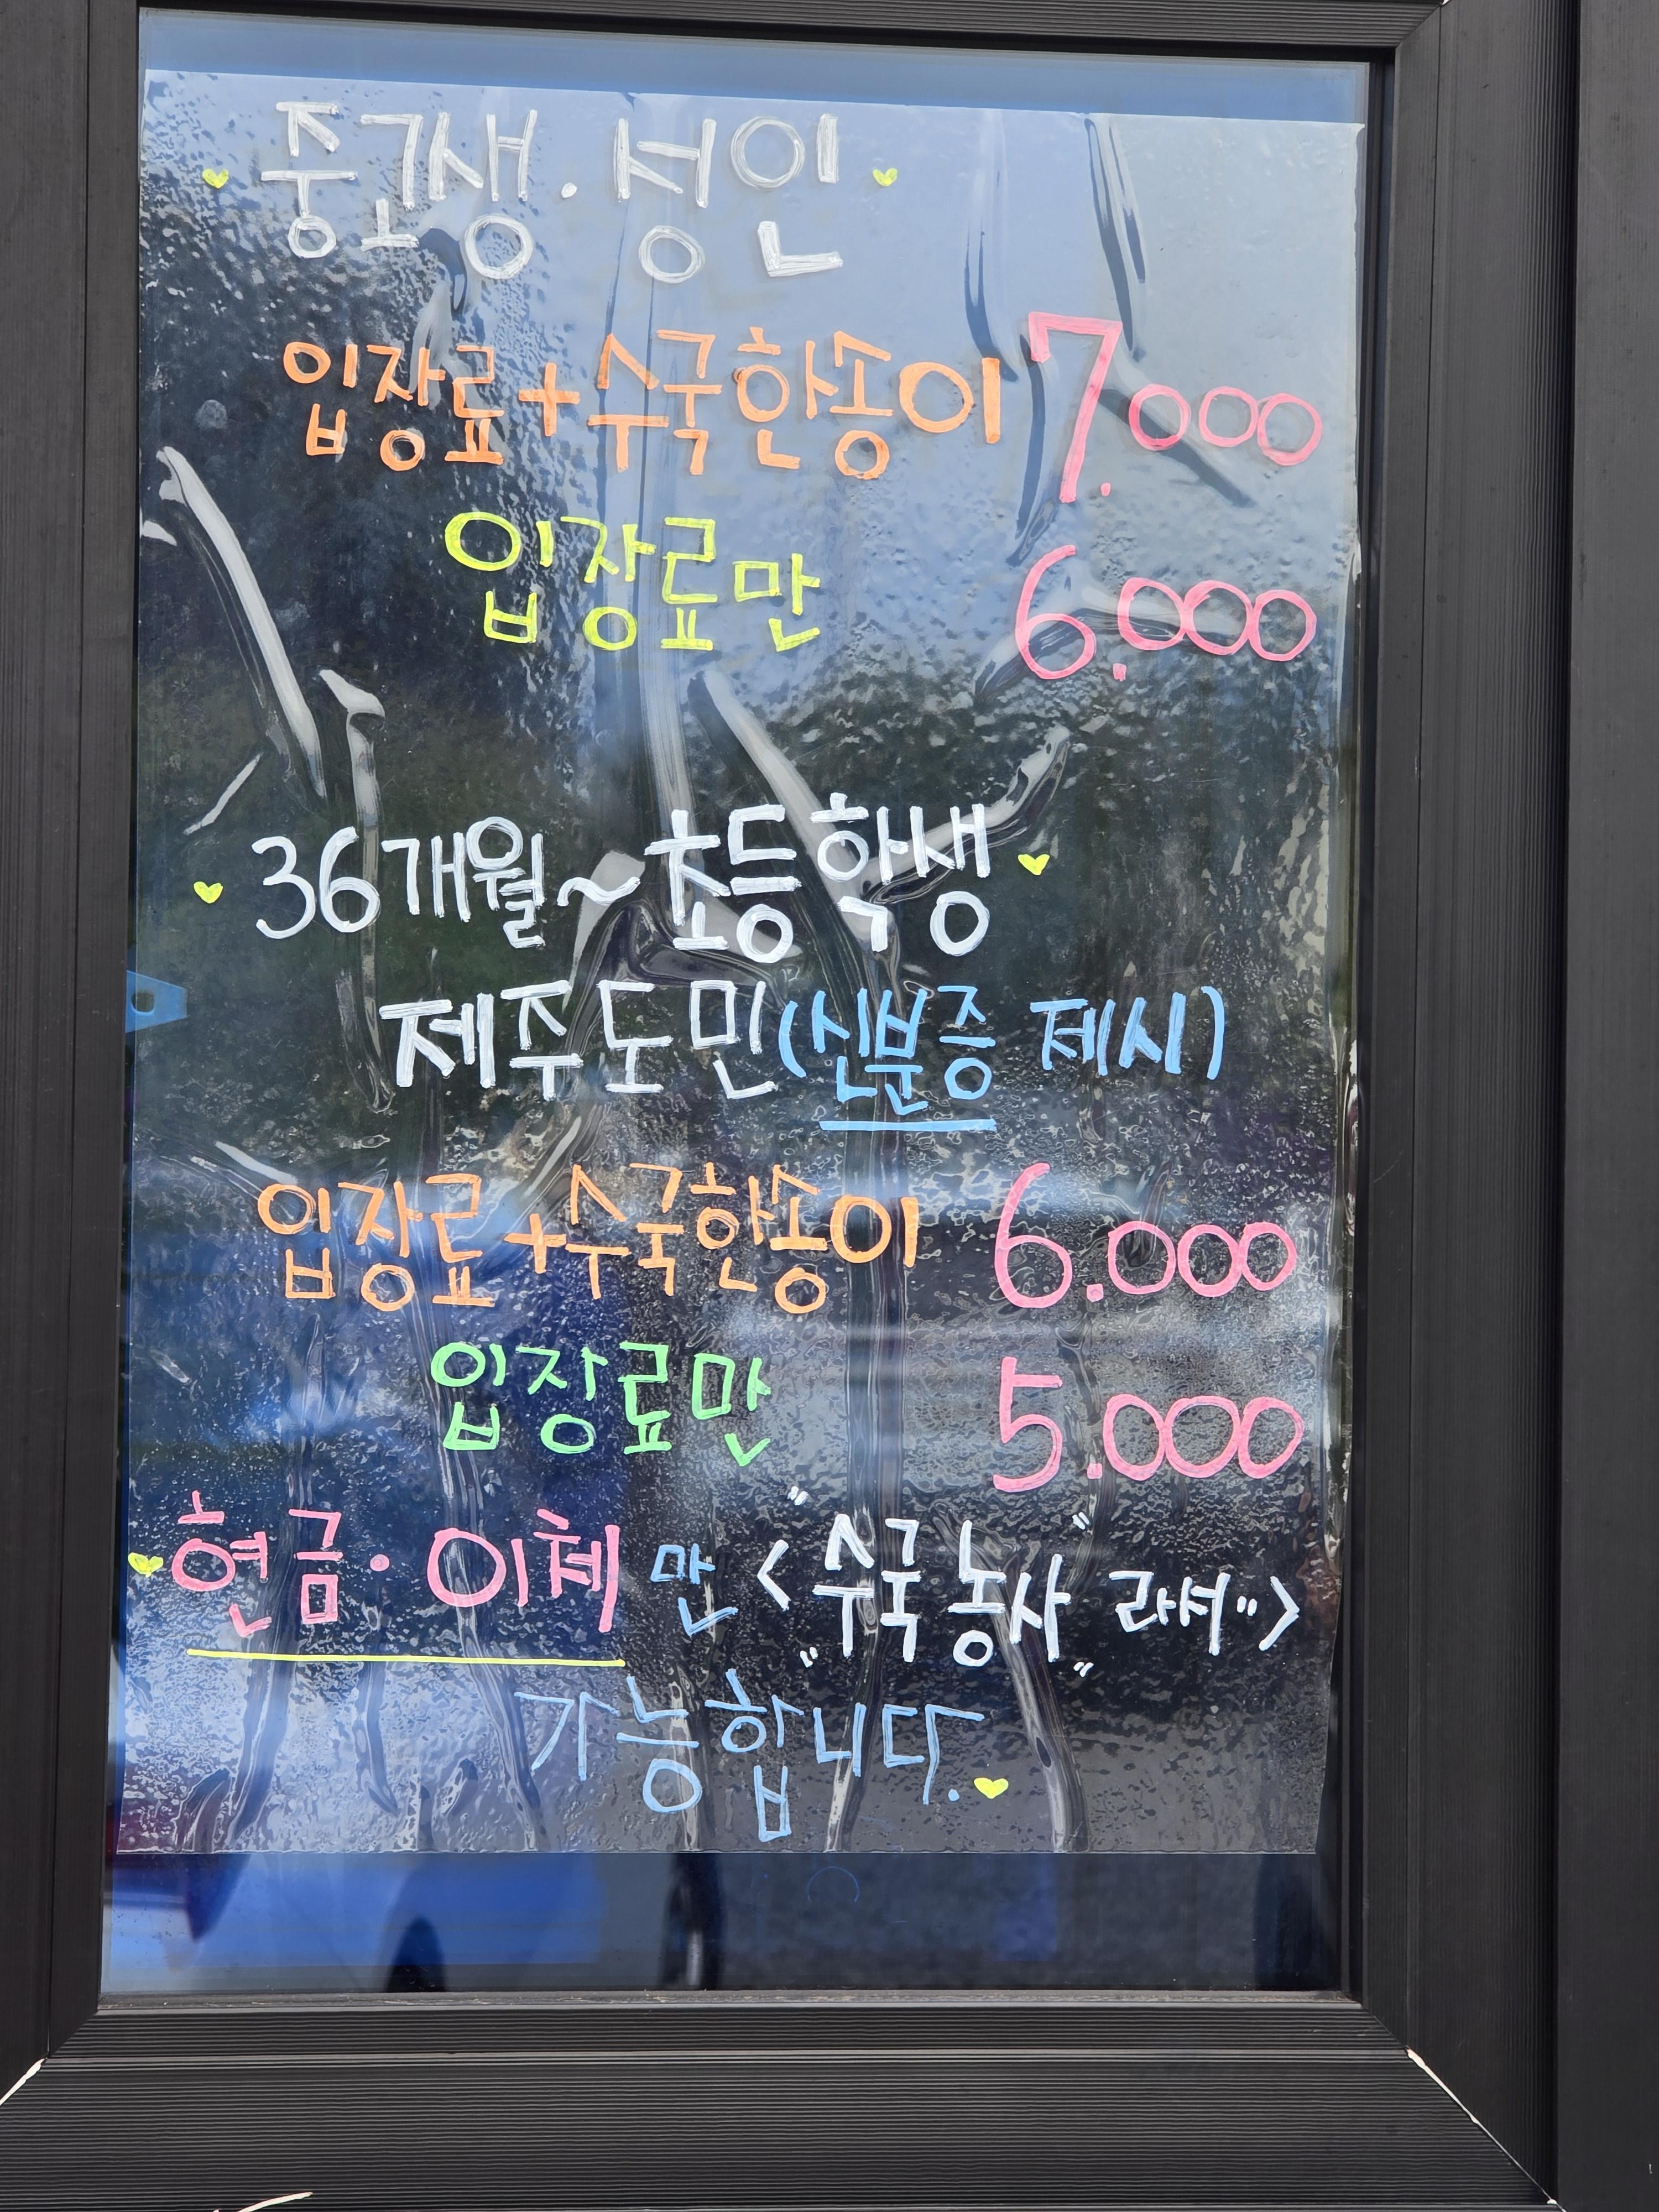 중고생·성인
입장료+수국한송이 7.000
입장료만 6.000
36개월~초등학생
제주도민(신분증 제시)
입장료+수국한송이 6.000
입장료만 5.000
현금·이체 만 <"수국농사" 라서..>
가능합니다.